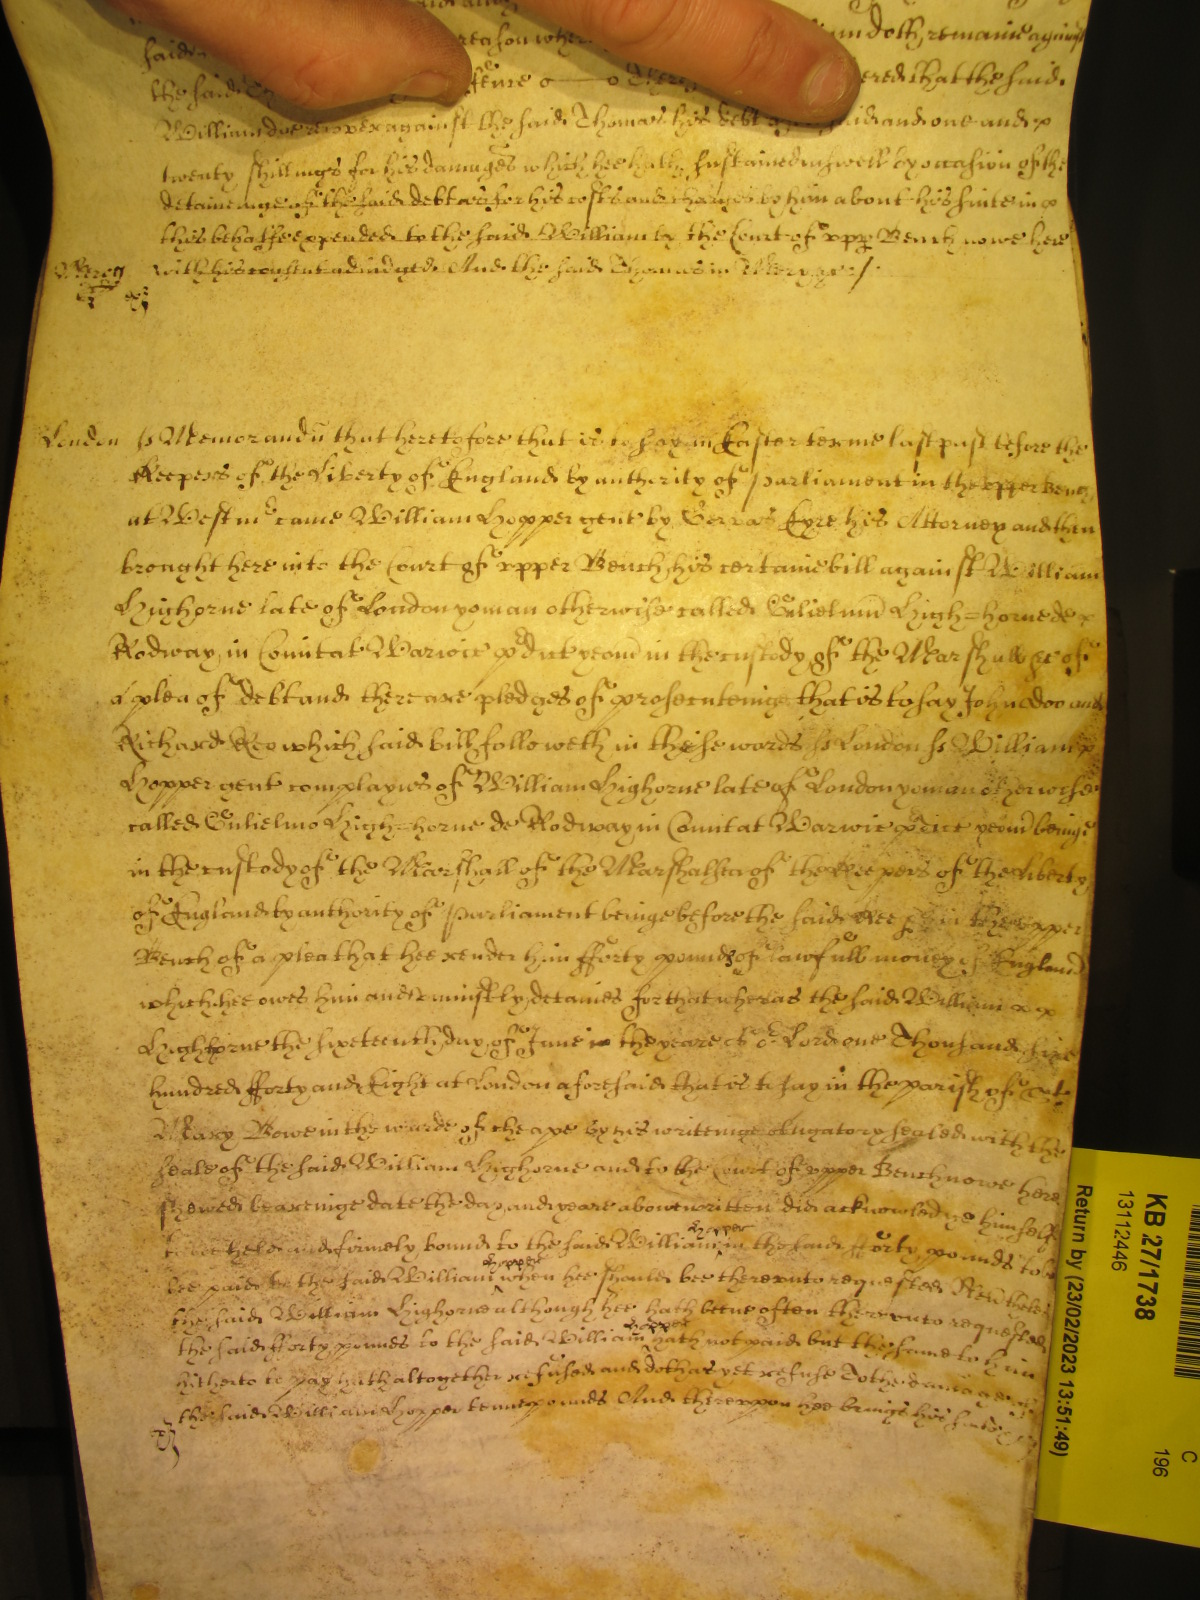 said reason wher and doth remaine against
the said fence o——o There ered that the said
William doe recover against the said Thomas his debt said and one and x
twenty shillings for his damages which hee hath sustained as well by occasion of the
deteineinge of the said debt as for his costs and charges by him about his suite in x
this behalfe expended to the said William by the Court of upper Bench nowe here
with his consent adiudged And the said Thomas in Mercy &c /
London ss Memorandū that heretofore that is to say in Easter terme last past before the
Keepers of the Liberty of England by authority of Parliament in the upper Bench
at Westmr came William Hopper gent by Gervas Eyre his Attorney and then
brought here into the Court of upper Bench his certaine bill against William
Highorne late of London yoman otherwise called Gulielmū High=horne de x
Rodway in Comitat Warwic pdict yeom in the custody of the Marshall &c of
a plea of debt and there are pledges of prosecuteinge that is to say John Doo and
Richard Roo which said bill followeth in theise words ss London ss William x
Hopper gent complaynes of William Highorne late of London yoman otherwise
called Gulielmo High=horne de Rodway in Comitat Warwic pdict yeom beinge
in the custody of the Marshall of the Marshalsea of the Keepers of the liberty
of England by authority of Parliament beinge before the said Keepers in the upper
Bench of a plea that hee render him fforty pounds of lawfull money of England
which hee owes him and uniustly detaines for that wheras the said William x x
Highorne the sixteenth day of June in the yeare of or Lord one Thousand sixe
hundred fforty and Eight at London aforesaid that is to say in the parish of St
Mary Bowe in the warde of cheape by his writeinge obligatory sealed with the
seale of the said William Highorne and to the Court of upper Bench nowe here
shewed beareinge date the day and yeare above written did acknowledge himselfe
to bee held and firmely bound to the said William Hopper in the said fforty pounds to
bee paid to the said William Hopper when hee should bee thereunto requested Neūtheles
the said William Highorne although hee hath beene often thereunto requested
the said fforty pounds to the said William Hopper hath not paid but the same to him
hitherto to pay hath altogether refused and doth as yet refuse To the damage of
the said William Hopper tenne pounds And thereupon hee brings his suite &c
KB 27/1738
13112446
Return by (23/02/2023 13:51:49)
C
196